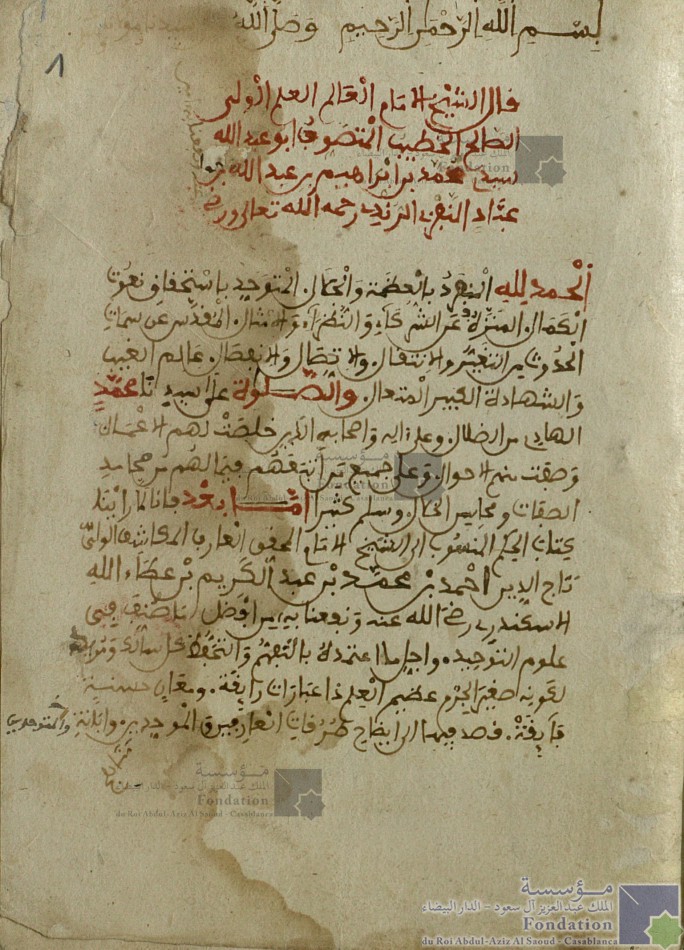 بسم الله الرحمن الرحيم وصلى الله
1
قال الشيخ الامام العالم العلم الولي
الصالح الخطيب المتصوف ابو عبد الله
سيدي محمد بن ابراهيم بن عبد الله بن
عباد النفزي الرندي رحمه الله تعالى ورضي
الحمد لله المنفرد بالعظمة والجلال المتوحد باستحقاق نعوت
الكمال المنزه عن الشركاء والنظراء والامثال المقدس عن سمات
الحدوث من التغير والانتقال والاتصال والانفصال عالم الغيب
والشهادة الكبير المتعال والصلوة على سيدنا محمد
الهادي من الضلال وعلى اله واصحابه الذين خلصت لهم الاعمال
وصفت منهم الاحوال وعلى جميع من اتبعهم فيما لهم من محامد
الصفات ومحاسن الخلال وسلم كثيرا اما بعد فانا لما راينا
كتاب الحكم المنسوب الى الشيخ الامام المحقق العارف المكاشف الولي
تاج الدين احمد بن محمد بن عبد الكريم بن عطاء الله
الاسكندري رضي الله عنه ونفعنا به من افضل ما صنف في
علوم التوحيد واجل ما اعتمده بالتفهم والتحفظ كل سالك ومريد
لكونه صغير الجرم عظيم العلم ذا عبارات رايقة ومعان حسنة
فايقة قصد فيها الى ايضاح طرق العارفين والموحدين وابانة
والمتوحدين
مؤسسة
الملك عبد العزيز آل سعود - الدار البيضاء
Fondation
du Roi Abdul-Aziz Al Saoud - Casablanca
مؤسسة
الملك عبد العزيز آل سعود - الدار البيضاء
Fondation
du Roi Abdul-Aziz Al Saoud - Casablanca